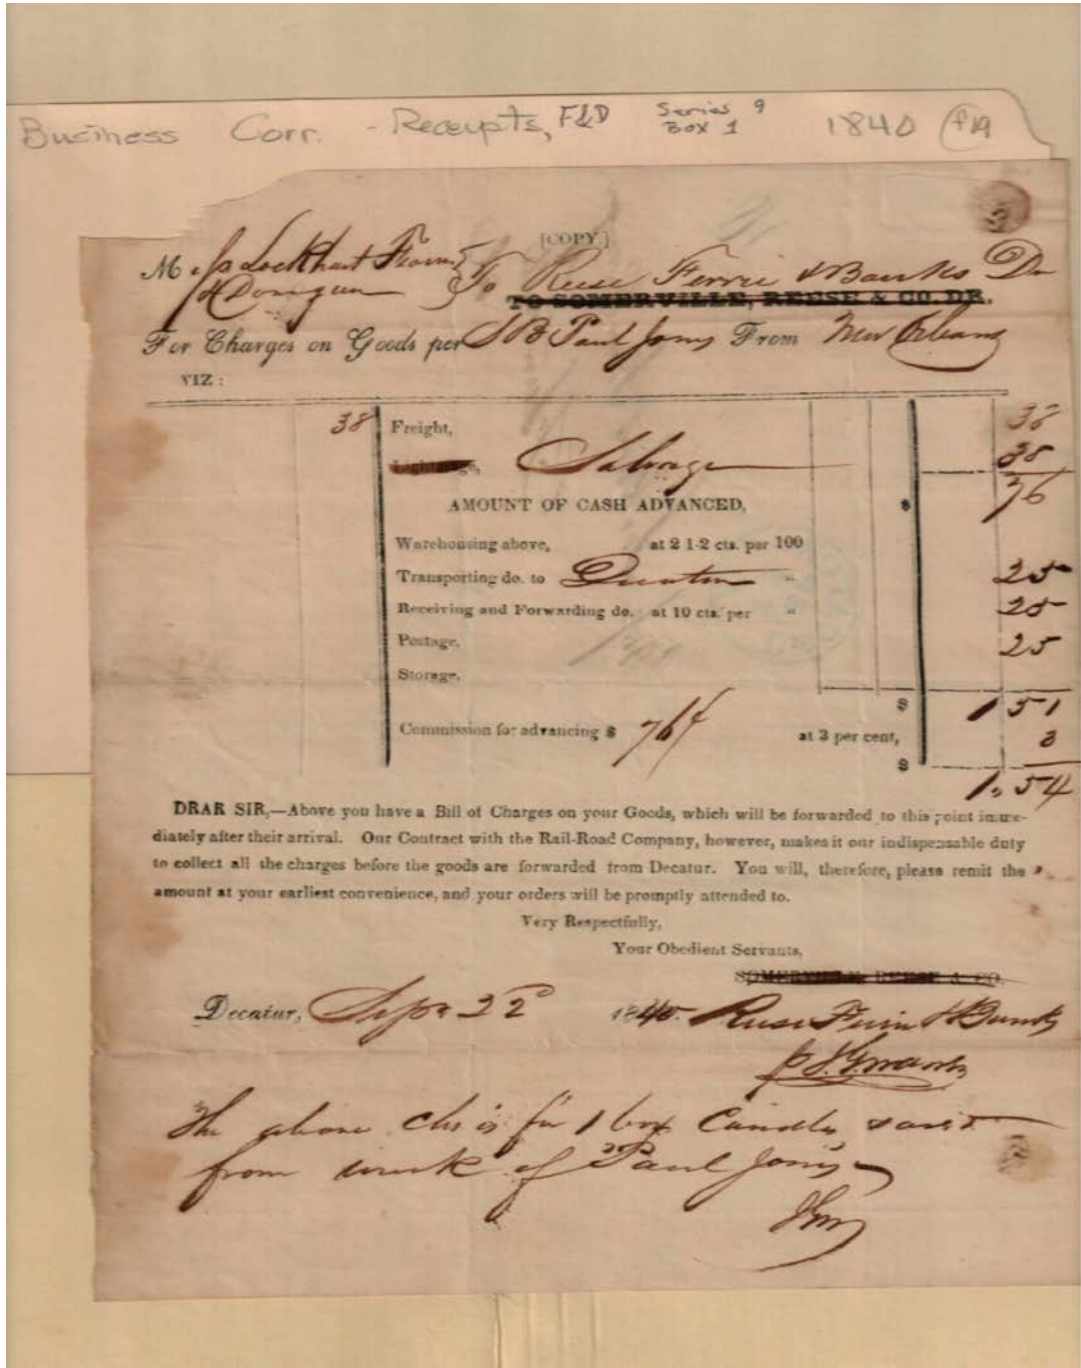 Business Corr. - Receipts, F&D Series 9 Box 1 1840 f19
[COPY.]
M Lockhart
& Donegan To Reese Ferrie & Banks Dr
TO SOMERVILLE, REESE & CO. DR.
For Charges on Goods per S B Paul Jones From New Orleans
VIZ:
38 Freight, 38
Lighterage, Salvage 38
AMOUNT OF CASH ADVANCED, $ 76
Warehousing above, at 2 1-2 cts. per 100
Transporting do. to Decatur " 25
Receiving and Forwarding do. at 10 cts. per " 25
Postage, 25
Storage,
$ 1 51
Commission for advancing $ 76 at 3 per cent, 3
$ 1.54
DRAR SIR,—Above you have a Bill of Charges on your Goods, which will be forwarded to this point imme-
diately after their arrival. Our Contract with the Rail-Road Company, however, makes it our indispensable duty
to collect all the charges before the goods are forwarded from Decatur. You will, therefore, please remit the
amount at your earliest convenience, and your orders will be promptly attended to.
Very Respectfully,
Your Obedient Servants,
SOMERVILLE, REESE & CO.
Decatur, Sept 22 1840. Reese Ferrie & Banks
The above chs is for 1 box Candles saved
from wreck of Paul Jones